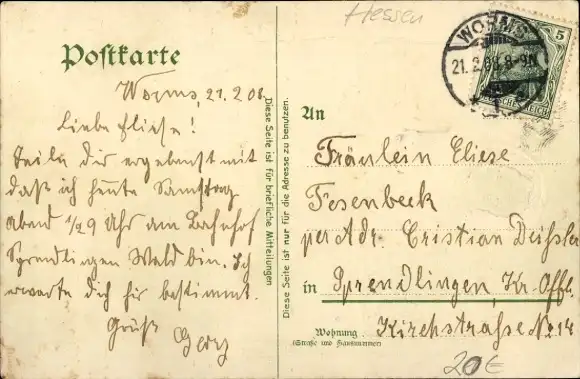 Hessen
WORMS
21.2.08.8-9N
5
DEUTSCHES REICH
Postkarte
Worms, 21.2.08.
Liebe Eliese!
Teile dir ergebenst mit
daß ich heute Samstag
abend 1/2 9 Uhr am Bahnhof
Sprendlingen Wald bin. Ich
erwarte dich hir bestimmt.
Gruß
Georg
Diese Seite ist für briefliche Mitteilungen
Diese Seite ist nur für die Adresse zu benutzen.
An
Fräulein Eliese
Fesenbeck
per Adr. Cristian Deißler
in Sprendlingen, Kr. Offb.
Kirchstraße No 14
Wohnung
(Straße und Hausnummer)
20€